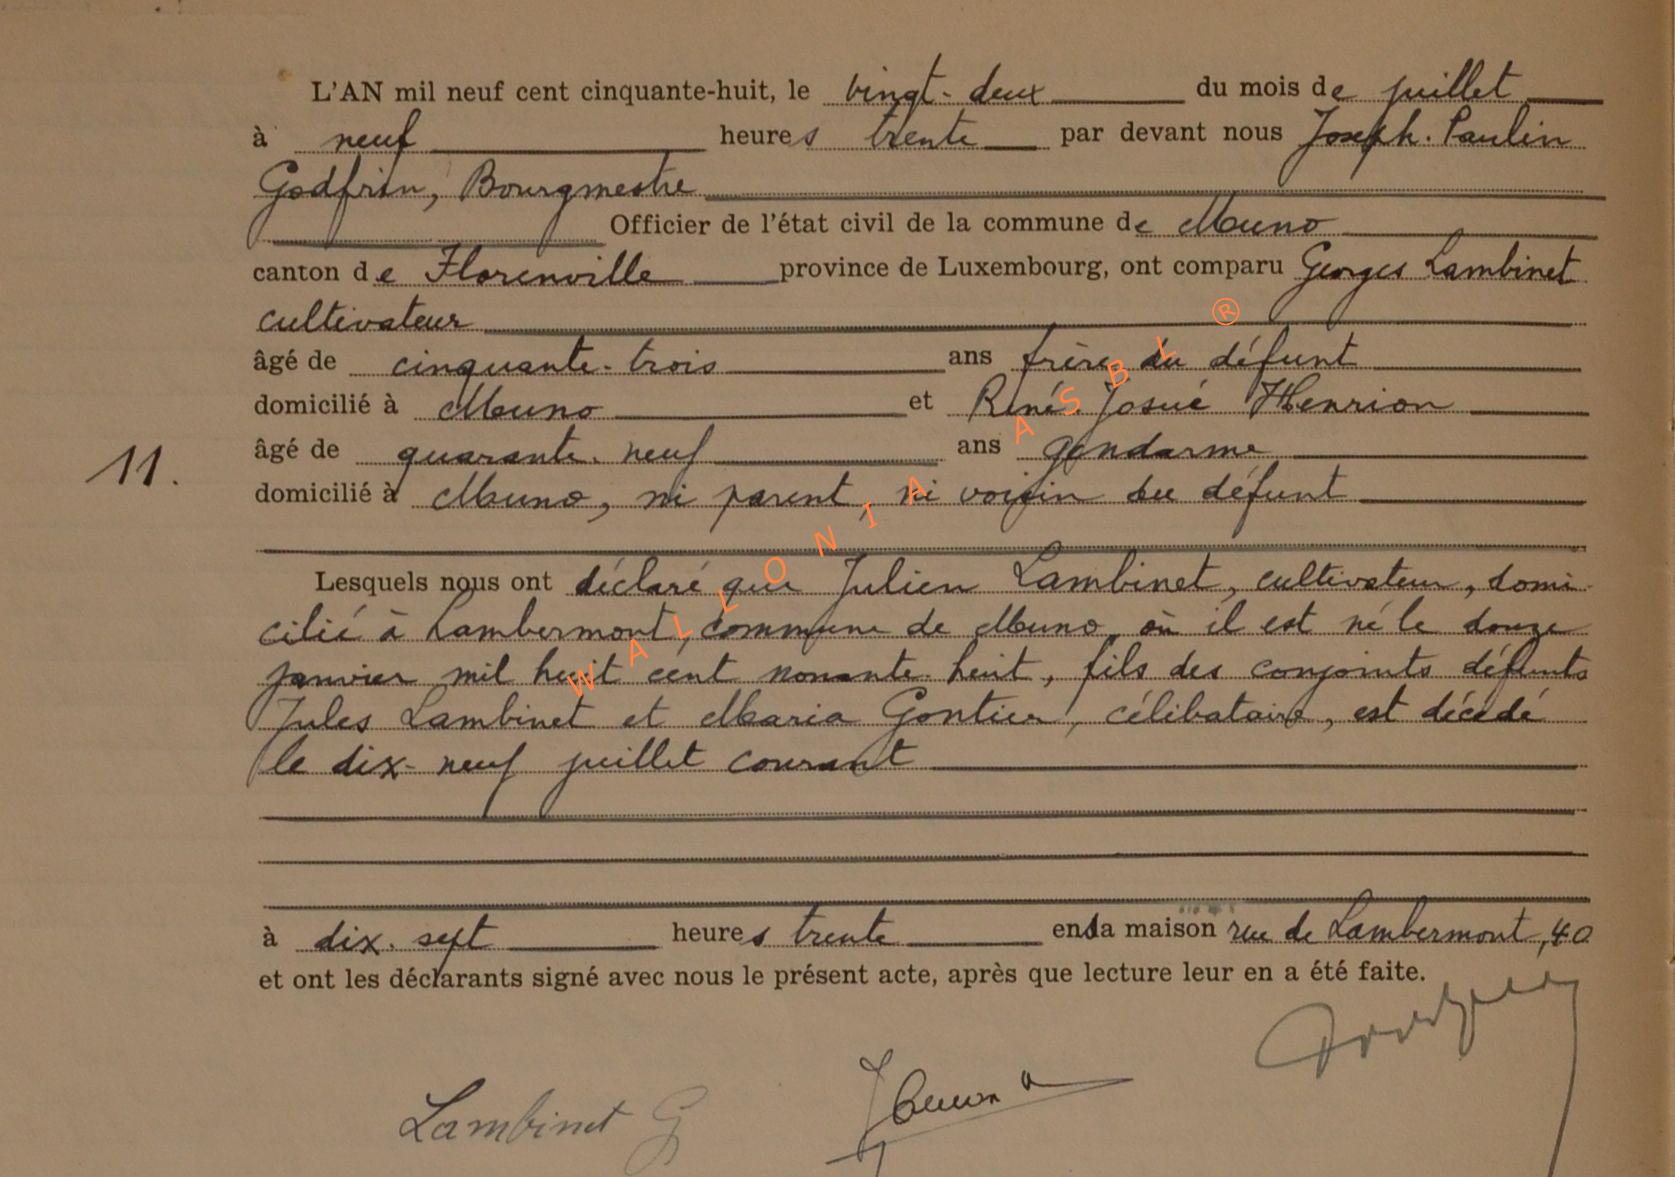 L'AN mil neuf cent cinquante-huit, le vingt-deux du mois de juillet
à neuf heures trente par devant nous Joseph-Paulin
Godfrin, Bourgmestre
Officier de l'état civil de la commune de Muno
canton de Florenville province de Luxembourg, ont comparu Georges Lambinet
cultivateur
âgé de cinquante-trois ans frère du défunt
domicilié à Muno et René Josué Henrion
âgé de quarante-neuf ans gendarme
11.
domicilié à Muno, ni parent, ni voisin du défunt
Lesquels nous ont déclaré que Julien Lambinet, cultivateur, domi-
cilié à Lambermont, commune de Muno, où il est né le douze
janvier mil huit cent nonante-huit, fils des conjoints défunts
Jules Lambinet et Maria Gontier, célibataire, est décédé
le dix-neuf juillet courant
à dix-sept heures trente en sa maison rue de Lambermont, 40
et ont les déclarants signé avec nous le présent acte, après que lecture leur en a été faite.
Lambinet G
WALLONIA ASBL ®